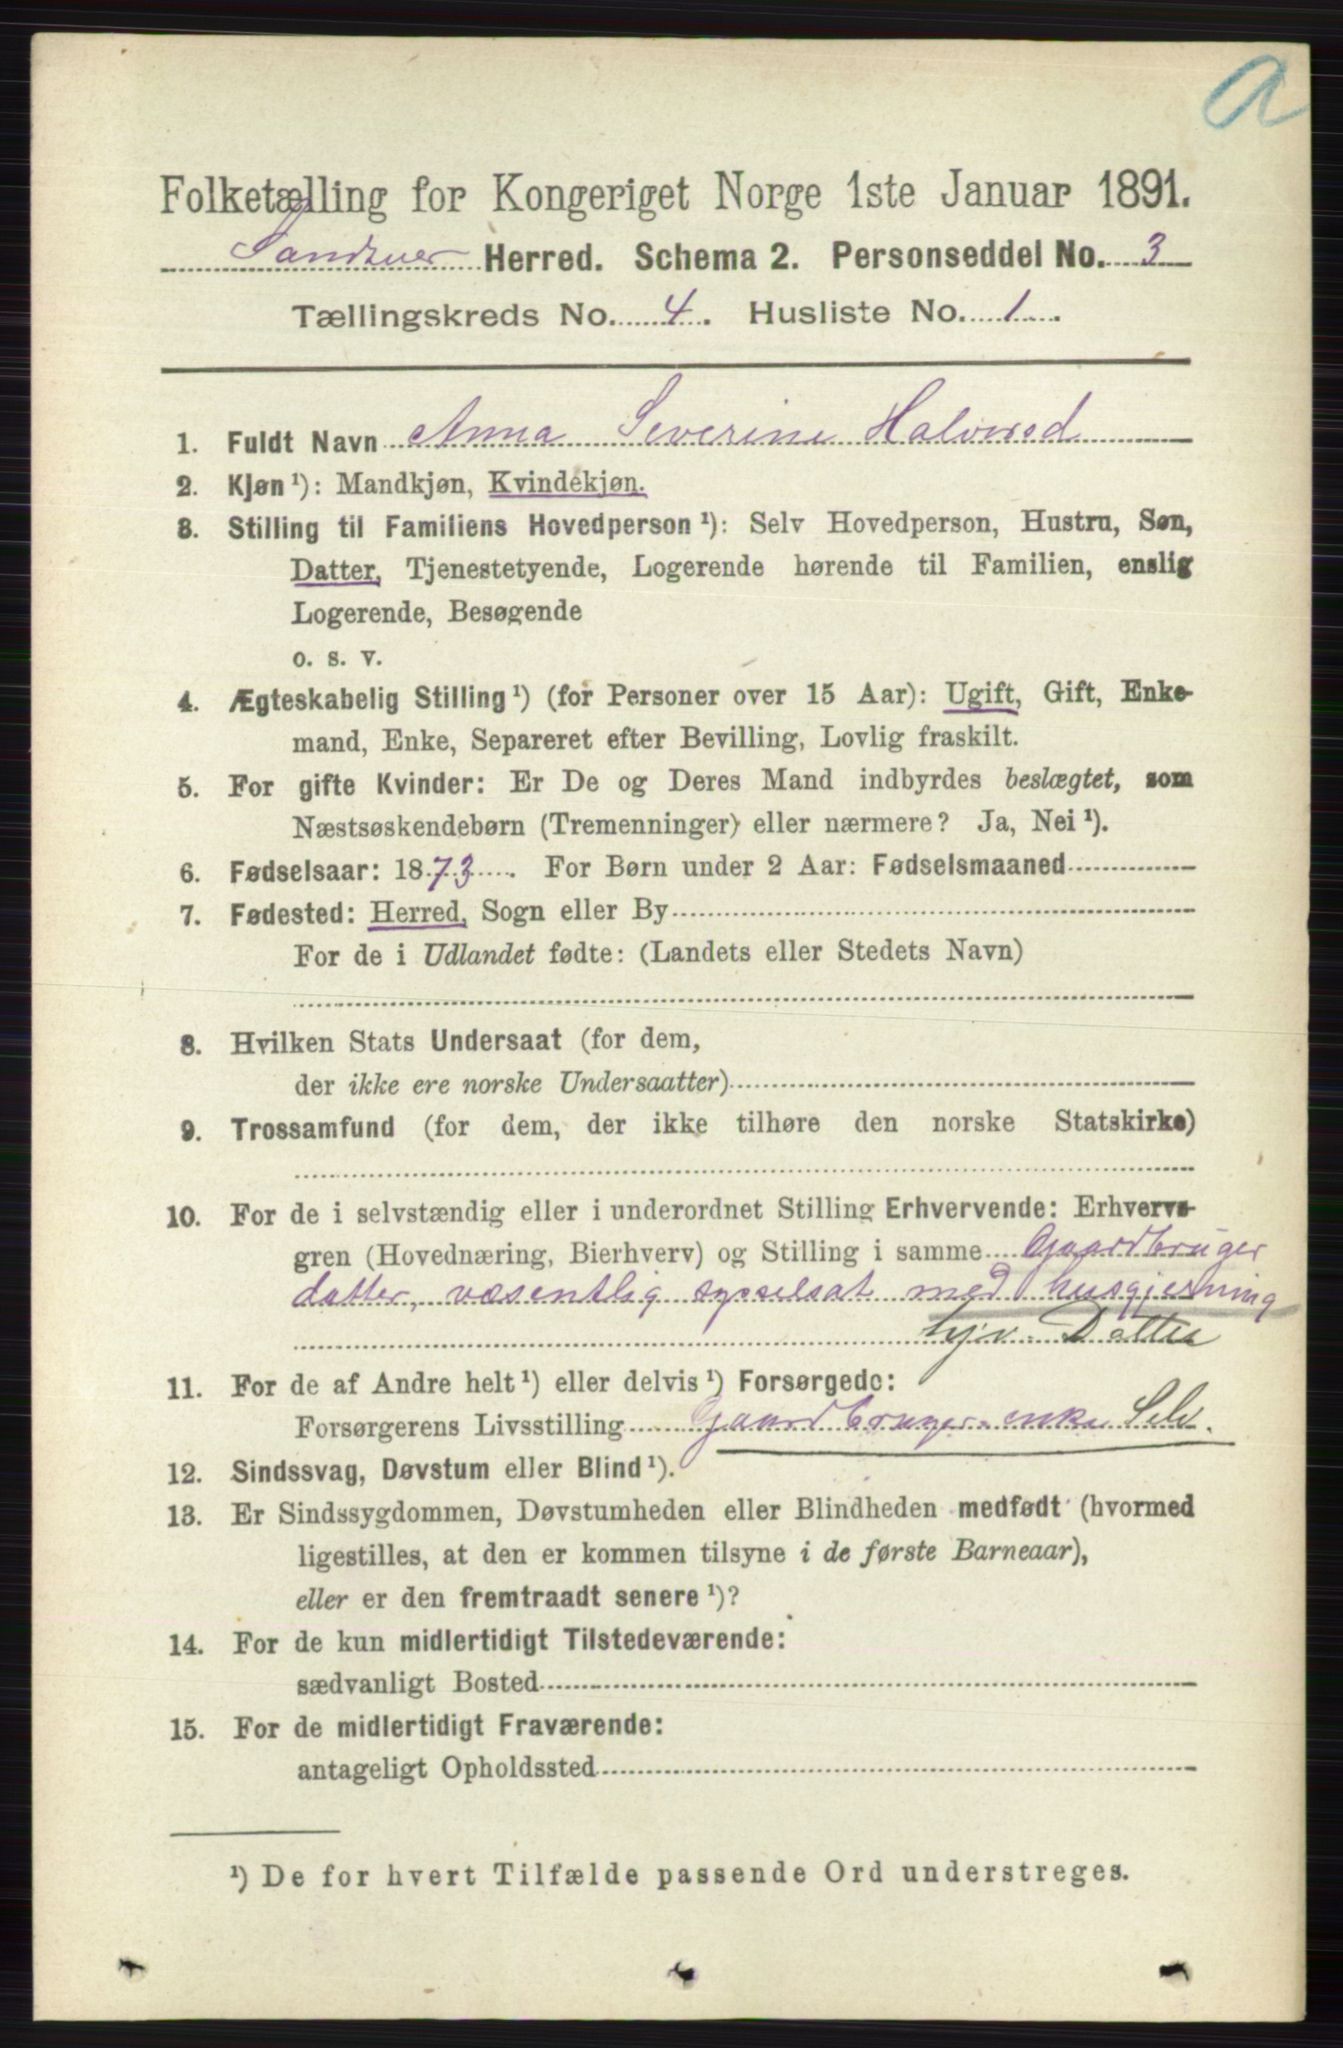 a
Folketælling for Kongeriget Norge 1ste Januar 1891.
Sandsver Herred. Schema 2. Personseddel No. 3
Tællingskreds No. 4. Husliste No. 1.
1. Fuldt Navn Anna Severine Halvorsd
2. Kjøn ¹): Mandkjøn, Kvindekjøn.
3. Stilling til Familiens Hovedperson ¹): Selv Hovedperson, Hustru, Søn,
Datter, Tjenestetyende, Logerende hørende til Familien, enslig
Logerende, Besøgende
o. s. v.
4. Ægteskabelig Stilling ¹) (for Personer over 15 Aar): Ugift, Gift, Enke-
mand, Enke, Separeret efter Bevilling, Lovlig fraskilt.
5. For gifte Kvinder: Er De og Deres Mand indbyrdes beslægtet, som
Næstsøskendebørn (Tremenninger) eller nærmere? Ja, Nei ¹).
6. Fødselsaar: 1873. For Børn under 2 Aar: Fødselsmaaned
7. Fødested: Herred, Sogn eller By
For de i Udlandet fødte: (Landets eller Stedets Navn)
8. Hvilken Stats Undersaat (for dem,
der ikke ere norske Undersaatter)
9. Trossamfund (for dem, der ikke tilhøre den norske Statskirke)
10. For de i selvstændig eller i underordnet Stilling Erhvervende: Erhvervs-
gren (Hovednæring, Bierhverv) og Stilling i samme Gaardbruger
datter, væsentlig sysselsat med husgjerning
hjv. Datter
11. For de af Andre helt ¹) eller delvis ¹) Forsørgede:
Forsørgerens Livsstilling Gaardbruger-enke Selv.
12. Sindssvag, Døvstum eller Blind ¹).
13. Er Sindssygdommen, Døvstumheden eller Blindheden medfødt (hvormed
ligestilles, at den er kommen tilsyne i de første Barneaar),
eller er den fremtraadt senere ¹)?
14. For de kun midlertidigt Tilstedeværende:
sædvanligt Bosted
15. For de midlertidigt Fraværende:
antageligt Opholdssted
¹) De for hvert Tilfælde passende Ord understreges.